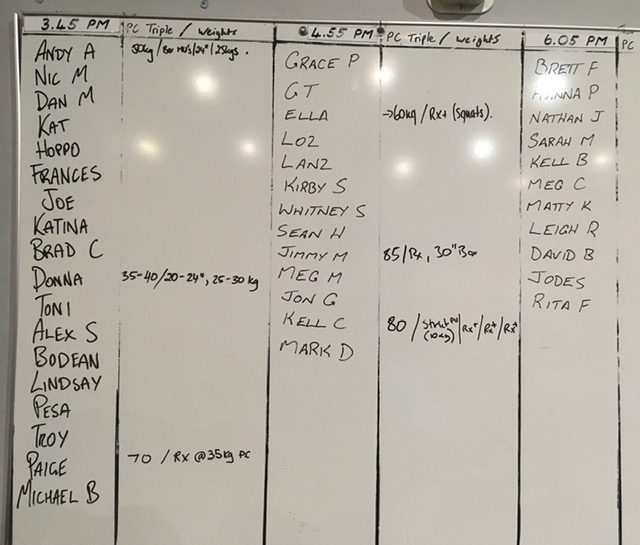 3.45 PM PC Triple / weights 4.55 PM PC Triple / weights 6.05 PM PC
ANDY A
NIC M
DAN M
KAT
HOPPO
FRANCES
JOE
KATINA
BRAD C
DONNA 35-40/20-24", 25-30 kg
TONI
ALEX S
BODEAN
LINDSAY
PESA
TROY
PAIGE 70 / RX @35kg PC
MICHAEL B
GRACE P
GT
ELLA →60kg / Rx+ (squats).
LOZ
LANZ
KIRBY S
WHITNEY S
SEAN W
JIMMY M 85/Rx, 30" Box
MEG M
JON G
KELL C 80 / Strict PU (10kg) / Rx+ / Rx+ / Rx+
MARK D
BRETT F
P
NATHAN J
SARAH M
KELL B
MEG C
MATTY K
LEIGH R
DAVID B
JODES
RITA F